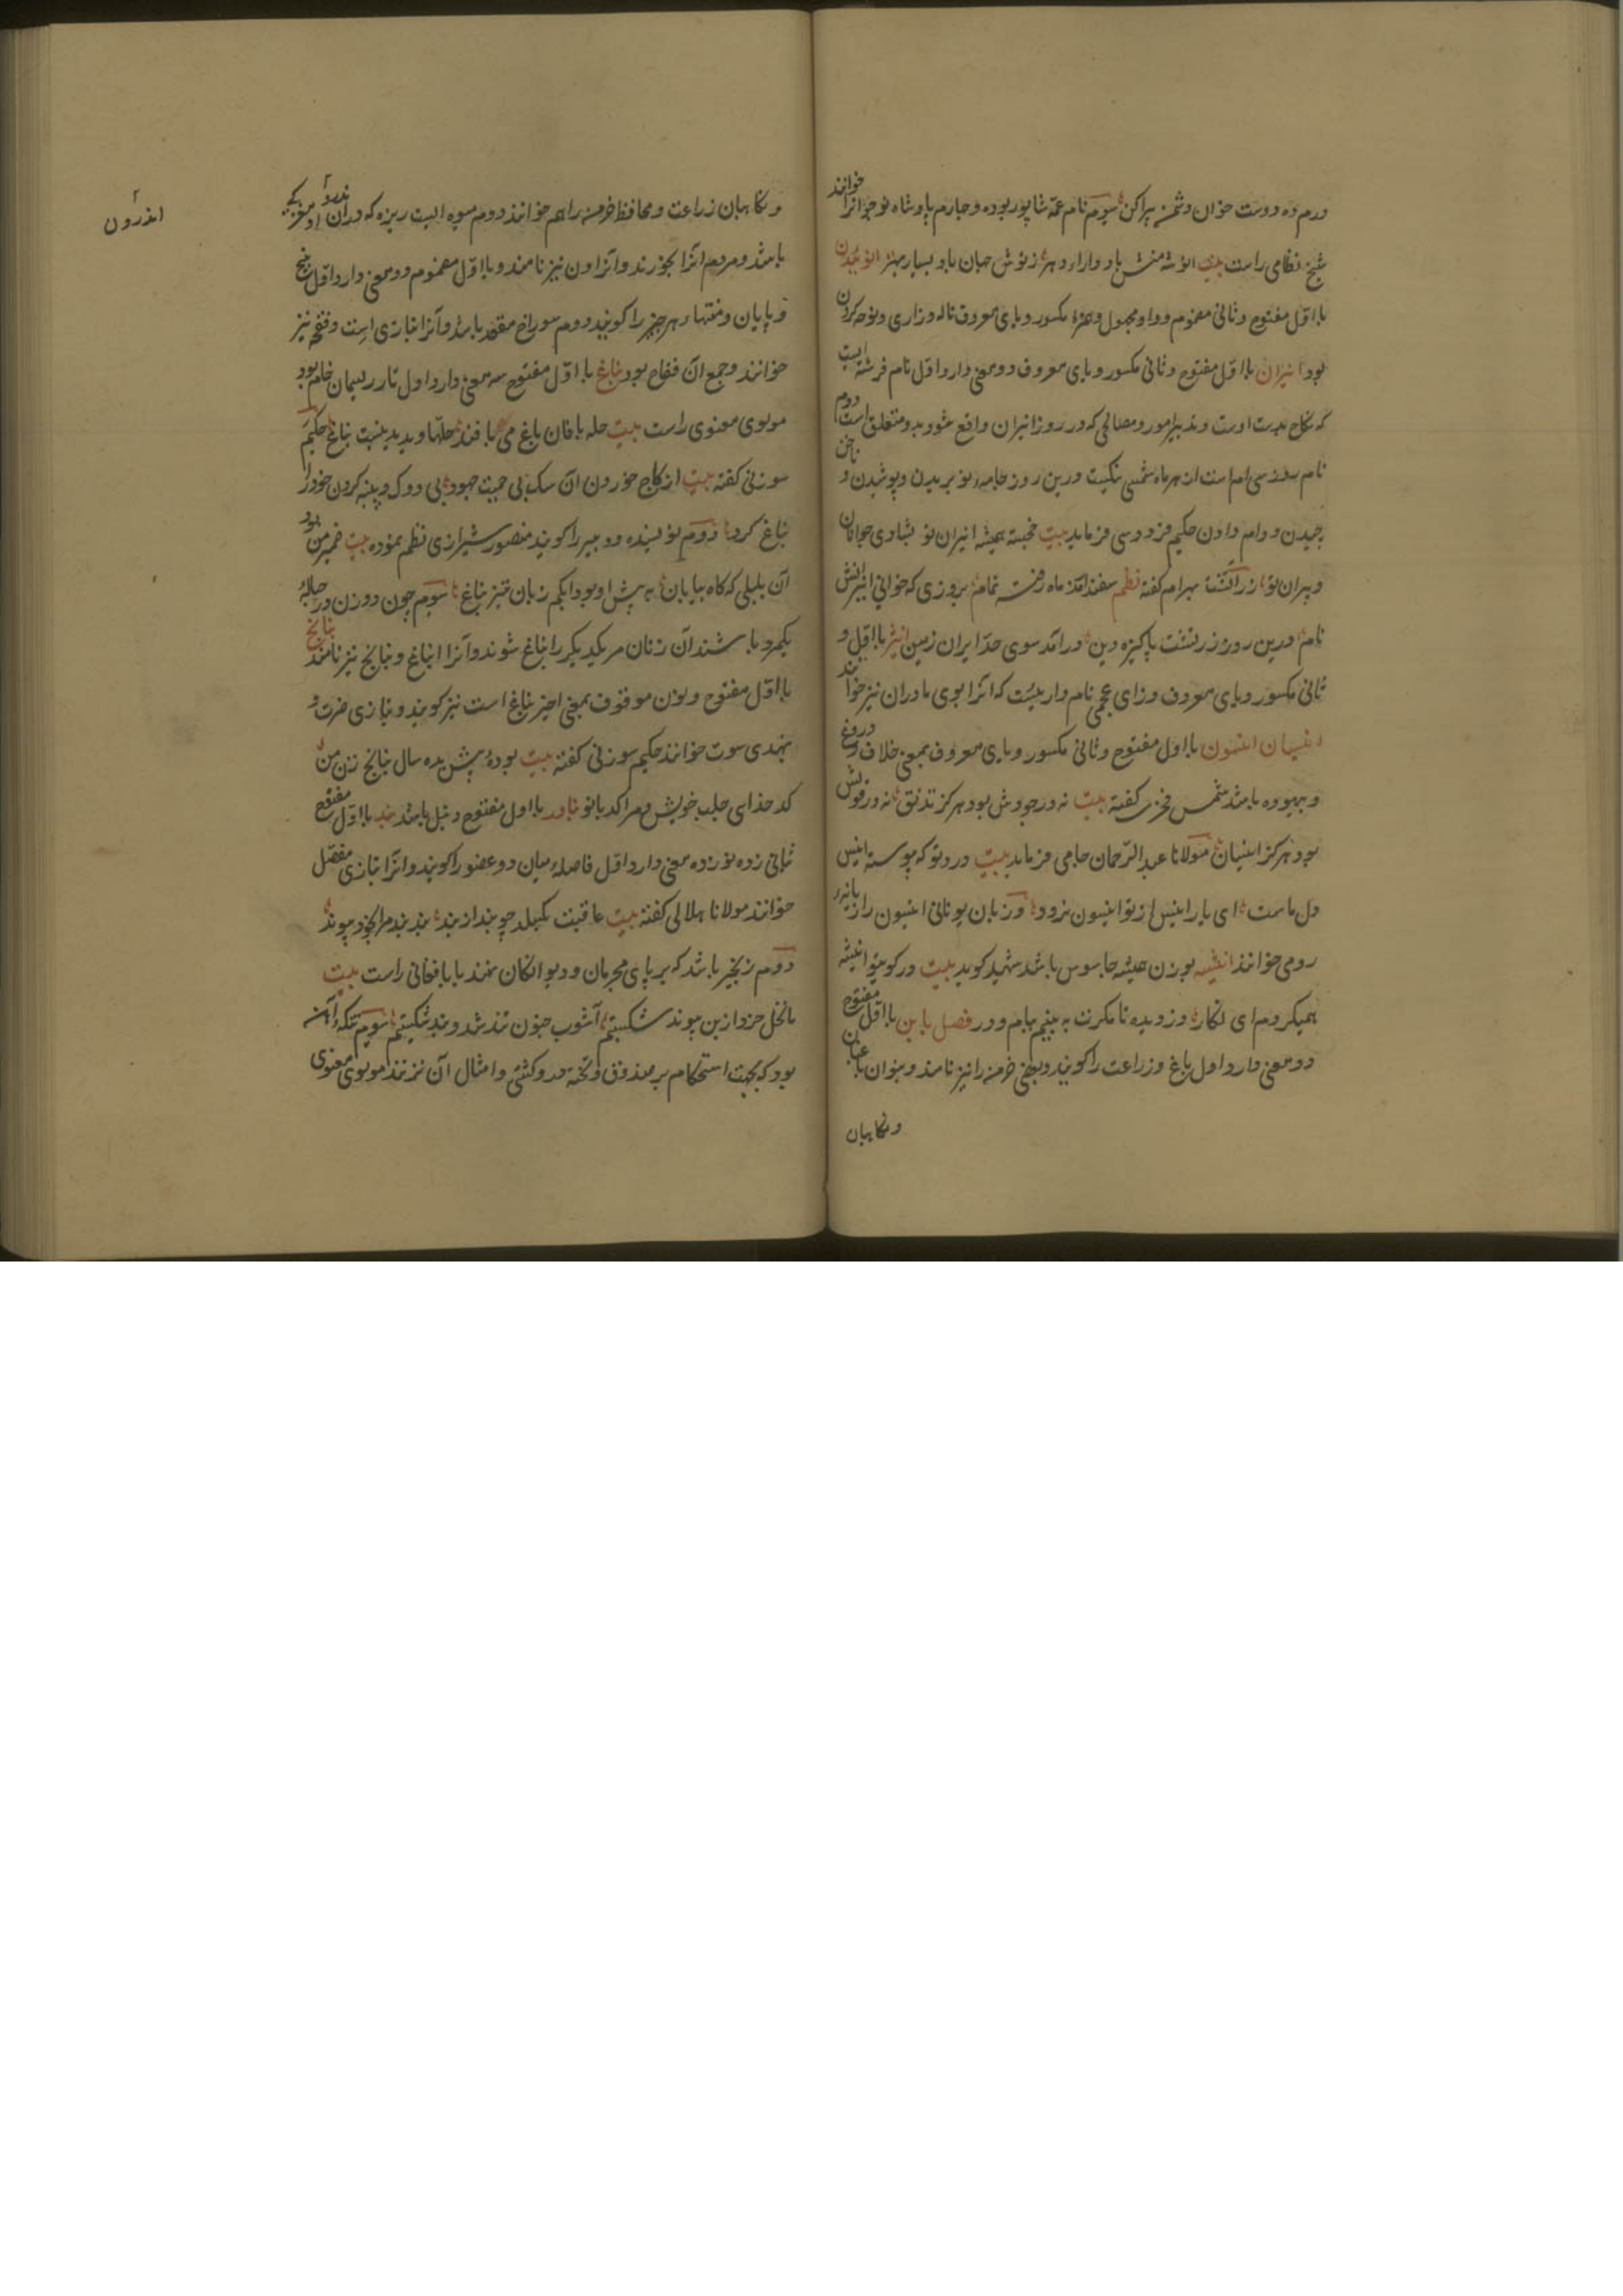 درم ده دوست خوان و دشمن پراکن سیوم نام عمهٔ شاپور بوده و چهارم پادشاه نوجوانرا خوانند
شیخ نظامی راست بیت انوشه منش باد دارا دهر زنوش جهان باد بسیار بهر انوئیدن
با اول مفتوح و ثانی مضموم و واو مجهول و همزهٔ مکسور و یای معروف ناله و زاری و نوحه کردن
بود انیران با اول مفتوح و ثانی مکسور و یای معروف دو معنی دارد اول نام فرشته ایست
که نکاح بدست اوست و تدبیر امور و مصالحی که در روز انیران واقع شود بدو متعلق است دوم
نام روز سی ام است از هر ماه شمسی نیکست درین روز جامه نو بریدن و پوشیدن و ناخن
چیدن و وام دادن حکیم فردوسی فرماید بیت خجسته همیشه انیران تو بشادی جوانان
و پیران تو زراتشت بهرام گفته نظم سفندارمذ ماه رفته تمام بروزی که خوانی انیرانش
نام درین روز زرتشت پاکیزه دین درآمد سوی حد ایران زمین انیژ با اول و
ثانی مکسور و یای معروف و زای عجمی نام دارییست که آنرا بوی مادران نیز خوانند
انیسان انیسون با اول مفتوح و ثانی مکسور و یای معروف بمعنی خلاف و دروغ
و بیهوده باشد شمس فخری گفته بیت نه در جودش بود هرگز تدنق نه در قولش
بود هرگز انیسان مولانا عبدالرحمان جامی فرماید بیت درد تو که پیوسته انیس
دل ماست ای یار انیس از تو انیسون نرود و زبان یونانی انیسون رازیانهٔ
رومی خوانند انیشه بوزن همیشه جاسوس باشد شهید گوید بیت در کوی تو انیشه
همیگردم ای نگار دزدیده تا مگرت به بینم ببام و در فصل با بن با اول مفتوح
دو معنی دارد اول باغ و زراعت را گویند و بعضی خرمن را نیز نامند و بنوان باغبان
و نکاهبان
و نکاهبان زراعت و محافظ خرمن را هم خوانند دوم میوه ایست ریزه که در آن اندرون مغزکی
اندرون
باشد و مردم آنرا بخورند و آنرا ون نیز نامند و با اول مضموم دو معنی دارد اول بیخ
و پایان و منتهاء هر چیز را گویند دوم سوراخ مقعد باشد و آنرا بتازی است و فقحه نیز
خوانند و جمع آن فقاح بود بناغ با اول مفتوح سه معنی دارد اول تار ریسمان خام بود
مولوی معنوی راست بیت حله بافان باغ می بافند حلها و پدید نیست بناغ حکیم
سوزنی گفته بیت از کاج خوردن آن سک بی حمیت جهود بی دوک و پنبه کردن خود را
بناغ کرد دوم نویسنده و دبیر را گویند منصور شیرازی نظم نموده بیت ضمیر من بود
آن بلبلی که گاه بیان به پیش او بود ابکم زبان تیز بناغ سیوم چون دو زن در حبالهٔ
یکمرد باشند آن زنان مر یکدیگر را بناغ شوند و آنرا انباغ و بنانج نیز نامند بنانج
با اول مفتوح و نون موقوف بمعنی اخیر بناغ است نیز گویند و بتازی ضرت و
بهندی سوت خوانند حکیم سوزنی گفته بیت بودهٔ پیش بده سال بنانج زن من
کدخدای جلب خویش و مرا کدبانو بناور با اول مفتوح دنبل باشد بند با اول مفتوح
ثانی زده نوزده معنی دارد اول فاصلهٔ میان دو عضو را گویند و آنرا بتازی مفصل
خوانند مولانا هلالی گفته بیت عاقبت بگسلد چو بند از بند بند بند مرا بخود پیوند
دوم زنجیر باشد که بر پای مجرمان و دیوانکان نهند بابا فغانی راست بیت
ما نخل خرد از بن پیوند شکستیم آشوب جنون تند شد و بند شکستیم سیوم تنکهٔ آهن
بود که بجهت استحکام بر صندوق و تخته در و کشتی و امثال آن نیز نند مولوی معنوی